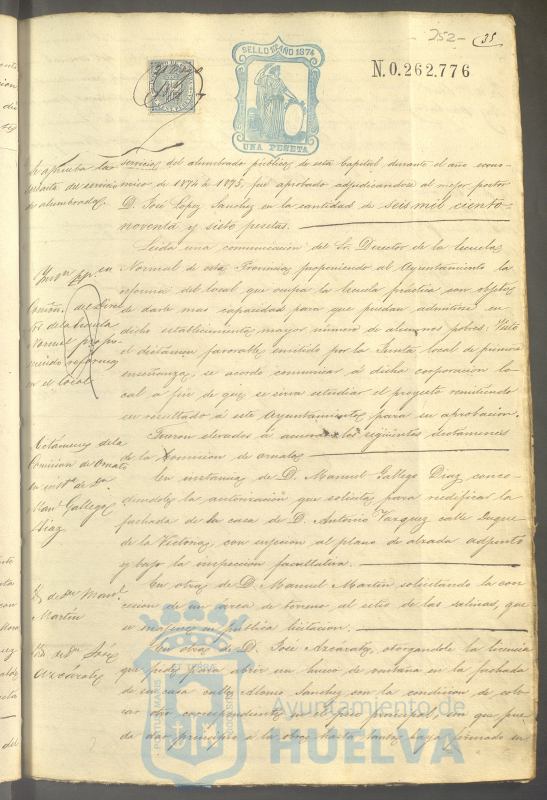 252-
35
SELLO 11º AÑO 1874
UNA PESETA
N.0.262.776
Se aprueba la
subasta del servicio
de alumbrado
servicio del alumbrado público de esta Capital, durante el año econo-
mico de 1874 à 1875, fué aprobado adjudicandose al mejor postor
D. José Lopez Sanchez en la cantidad de seis mil ciento
noventa y siete pesetas.
Leida una comunicacion del Sr. Director de la Escuela
Normal de esta Provincia proponiendo al Ayuntamiento la
reforma del local que ocupa la Escuela practica con objeto
de darle mas capacidad para que puedan admitirse en
dicho establecimiento mayor número de alumnos pobres: Visto
el dictamen favorable emitido por la Junta local de primera
enseñanza, se acordó comunicar á dicha corporacion lo-
cal a fin de que se sirva estudiar el proyecto remitiendo
su resultado à este Ayuntamiento para su aprobacion.
Comn. del Direc
tor de la Escuela
Normal propo
niendo reformas
en el local
Fueron elevados à acuerdo los siguientes dictamenes
de la Comision de ornato
Dictamenes de la
Comision de Ornato
en inst.ª de Dn
Man.l Gallego
Diaz
En instancia de D. Manuel Gallego Diaz conce
diendole la autorizacion que solicita para reedificar la
fachada de la casa de D. Antonio Vazquez calle Duque
de la Victoria, con sujecion al plano de alzada adjunto
y bajo la inspeccion facultativa.
Id de Dn Man.l
Martin
En otra de D. Manuel Martin solicitando la con
cesion de un área de terreno al sitio de las salinas, que
se en pública licitacion.
Id. de Dn José
Azcárate
En otra de D. José Azcárate, otorgandole la licencia
que pide para abrir un hueco de ventana en la fachada
de su casa calle Alonso Sanchez con la condicion de colo
car otro correspondiente en el piso principal, sin que pue
da dar principio à la obra hasta tanto haya en
PORTUS MARIS
Ayuntamiento de
HUELVA